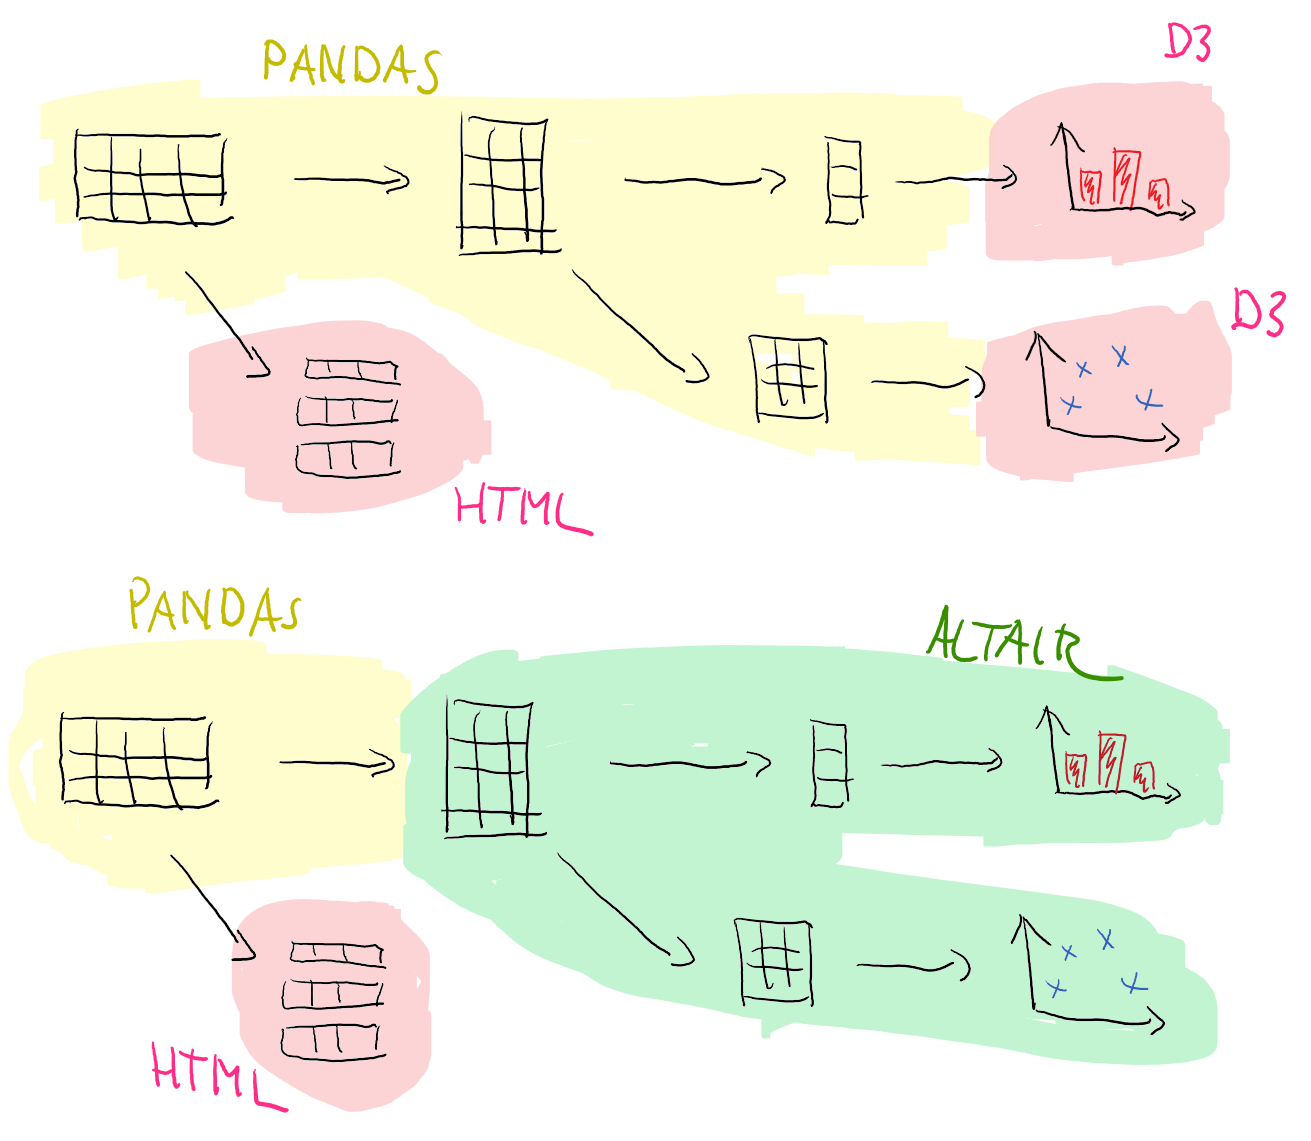 PANDAS
D3
D3
HTML
PANDAS
ALTAIR
HTML